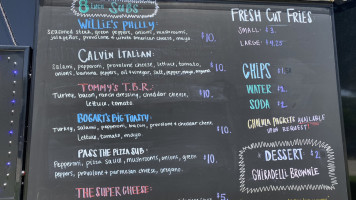 8 Inch Subs
Willie's Philly:
Seasoned steak, green peppers, onions, mushrooms,
jalapeños, provolone + white american cheese, mayo
$10.
Calvin Italian:
Salami, pepperoni, provolone cheese, lettuce, tomato,
onions, banana peppers, oil + vinegar, salt, pepper, mayo, oregano
$10.
Tommy's T.B.R.:
Turkey, bacon, ranch dressing, cheddar cheese,
lettuce, tomato.
$10.
Bogart's Big Toasty:
Turkey, salami, pepperoni, bacon, provolone + cheddar cheese
lettuce, tomato, mayo
$10.
Pass the Pizza Sub:
Pepperoni, pizza sauce, mushrooms, onions, green
peppers, provolone + parmesan cheese, oregano.
$10.
The Super Cheese:
$5.
Fresh Cut Fries
Small: $3.
Large: $4.25
Chips $1.
Water $2.
Soda $2.
Ghiradelli Brownie
Dessert: $2.
Upon Request
Available